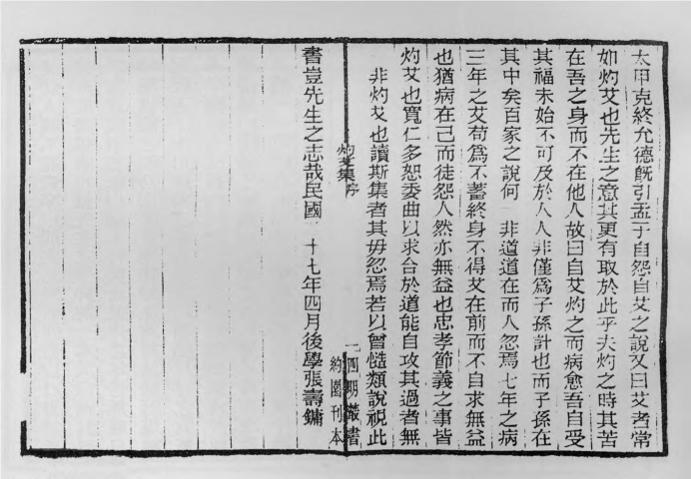 太甲克終允德旣引孟子自怨自艾之說又曰艾者常
如灼艾也先生之意其更有取於此乎夫灼之時其苦
在吾之身而不在他人故曰自艾灼之而病愈吾自受
其福未始不可及於人人非僅爲子孫計也而子孫在
其中矣百家之說何 非道道在而人忽焉七年之病
三年之艾苟爲不蓄終身不得艾在前而不自求無益
也猶病在己而徒怨人然亦無益也忠孝節義之事皆
灼艾也寬仁多恕委曲以求合於道能自攻其過者無
非灼艾也讀斯集者其毋忽焉若以曾慥類說視此
灼艾集序
一四明叢書
約園刊本
書豈先生之志哉民國 十七年四月後學張壽鏞